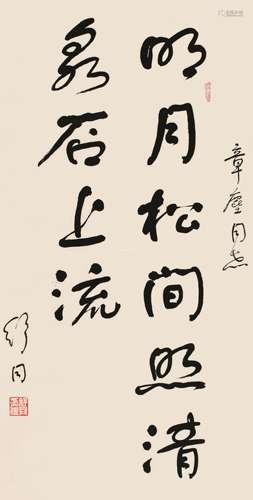 章尘同志
明月松间照清
泉石上流
舒同